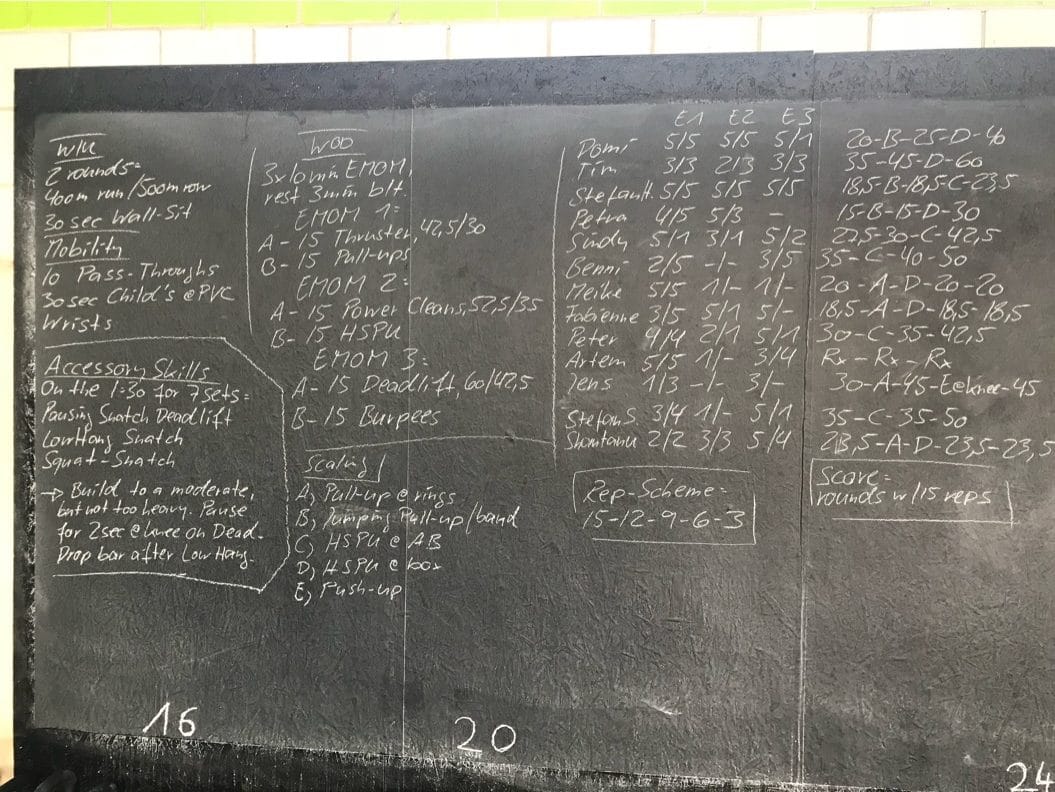 W/U
2 rounds:
400m run/500m row
30 sec Wall-Sit
Mobility
10 Pass-Throughs
30sec Child's @PVC
Wrists
Accessory Skills
On the 1:30 for 7 sets:
Pausing Snatch Deadlift
Low Hang Snatch
Squat-Snatch
→ Build to a moderate,
but not too heavy. Pause
for 2sec @ knee on Dead.
Drop bar after Low Hang.
WOD
3x10min EMOM,
rest 3min b/t.
EMOM 1:
A- 15 Thruster, 42,5/30
B- 15 Pull-ups
EMOM 2:
A- 15 Power Cleans, 52,5/35
B- 15 HSPU
EMOM 3:
A- 15 Deadlift, 60/42,5
B- 15 Burpees
Scaling
A) Pull-up @ rings
B) Jumping Pull-up/band
C) HSPU @ AB
D) HSPU @ box
E) Push-up
E1 E2 E3
Domi 5/5 5/5 5/1 20-B-25-D-40
Tim 3/3 2/3 3/3 35-45-D-60
StefanH. 5/5 5/5 5/5 18,5-B-18,5-C-23,5
Petra 4/5 5/3 - 15-B-15-D-30
Sindy 5/1 3/1 5/2 22,5-30-C-42,5
Benni 2/5 -/- 3/5 35-C-40-50
Meike 5/5 1/- 1/- 20-A-D-20-20
Fabienne 3/5 5/1 5/- 18,5-A-D-18,5-18,5
Peter 4/4 2/1 5/1 30-C-35-42,5
Artem 5/5 1/- 3/4 Rx-Rx-Rx
Jens 1/3 -/- 3/- 30-A-45-E@knee-45
StefanS 3/4 1/- 5/1 35-C-35-50
2/2 3/3 5/4 23,5-A-D-23,5-23,5
Rep-Scheme:
15-12-9-6-3
Score:
rounds w/15 reps
16
20
24